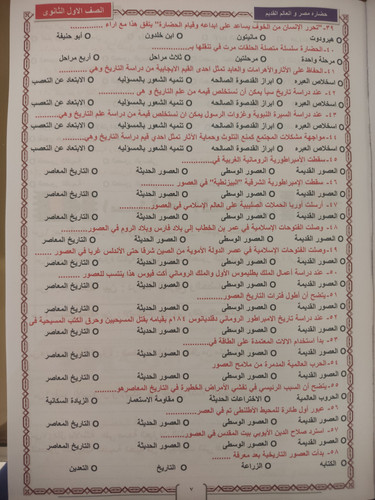 حضارة مصر و العالم القديم
الصف الأول الثانوى
٣٩- "تحرر الإنسان من الخوف يساعد على ابداعه وقيام الحضارة" يتفق هذا مع أراء ............
O هيرودوت O مانيتون O ابن خلدون O أبو حنيفة
٤٠- الحضارة سلسلة متصلة الحلقات مرت في تنقلها بـ............
O مرحلة واحدة O مرحلتين O ثلاث مراحل O أربع مراحل
٤١- الحفاظ على الأثار والاهرامات والمعابد تمثل احدى القيم الايجابية من دراسة التاريخ وهي............
O استخلاص العبره O ابراز القدوة الصالحه O تنميه الشعور بالمسئوليه O الابتعاد عن التعصب
٤٢- عند دراسة تاريخ مينا يمكن أن نستخلص قيمه من علم التاريخ و هى ............
O استخلاص العبره O ابراز القدوة الصالحه O تنميه الشعور بالمسئوليه O الابتعاد عن التعصب
٤٣- عند دراسة السيرة النبوية وغزوات الرسول يمكن أن نستخلص قيمة من دراسة علم التاريخ وهي............
O استخلاص العبره O ابراز القدوة الصالحه O تنميه الشعور بالمسئوليه O الابتعاد عن التعصب
٤٤- مواجهة مشكلات المجتمع لمنع التلوث وحماية الأثار تمثل احدى قيم دراسة التاريخ وهي............
O استخلاص العبره O ابراز القدوة الصالحه O تنمية الشعور بالمسئوليه O الابتعاد عن التعصب
٤٥- سقطت الأمبراطورية الرومانية الغربية في............
O العصور القديمة O العصور الوسطى O العصور الحديثة O التاريخ المعاصر
٤٦- سقطت الإمبراطورية الشرقية "البيزنطية" في العصور............
O العصور القديمة O العصور الوسطى O العصور الحديثة O التاريخ المعاصر
٤٧- أرسلت أوربا الحملات الصليبية على العالم الإسلامي في العصور............
O العصور القديمة O العصور الوسطى O العصور الحديثة O التاريخ المعاصر
٤٨- وصلت الفتوحات الإسلامية في عمر بن الخطاب إلى بلاد فارس وبلاد الروم في العصور............
O العصور القديمة O العصور الوسطى O العصور الحديثة O التاريخ المعاصر
٤٩- وصلت الفتوحات الإسلامية في عصر الدولة الأموية من الصين شرقا حتى الأندلس غربا في العصور ............
O العصور القديمة O العصور الوسطى O العصور الحديثة O التاريخ المعاصر
٥٠- عند دراسة أعمال الملك بطليموس الأول والملك الروماني أكت فيوس هذا ينتسب للعصور............
O العصور القديمة O العصور الوسطى O العصور الحديثة O التاريخ المعاصر
٥١- يتضح أن أطول فترات التاريخ العصور............
O العصور القديمة O العصور الوسطى O العصور الحديثة O التاريخ المعاصر
٥٢- عند دراسة تاريخ الإمبراطور الروماني دقلديانوس ٢٨٤م بقيامه بقتل المسيحيين وحرق الكتب المسيحية فى
O العصور القديمة O العصور الوسطى O العصور الحديثة O التاريخ المعاصر
٥٣- بدأ استخدام الآلات المعتمدة على الطاقة في............
O العصور القديمة O العصور الوسطى O العصور الحديثة O التاريخ المعاصر
٥٤- الحرب العالمية المدمرة من ملامح العصور............
O العصور القديمة O العصور الوسطى O العصور الحديثة O التاريخ المعاصر
٥٥- يتضح أن السبب الرئيسي في تفشي الأمراض الخطيرة في التاريخ المعاصر هو............
O الحروب العالمية O الاختراعات الحديثة O مقاومة الاستعمار O الزيادة السكانية
٥٦- عبور أول طائرة للمحيط الأطلنطى تم في العصور............
O العصور القديمة O العصور الوسطى O العصور الحديثة O التاريخ المعاصر
٥٧- استرد صلاح الدين الأيوبي بيت المقدس في العصور............
O العصور القديمة O العصور الوسطى O العصور الحديثة O التاريخ المعاصر
٥٨- بدأت العصور التاريخية بعد معرفة ............
O الكتابه O الزراعة O التاريخ O التعدين